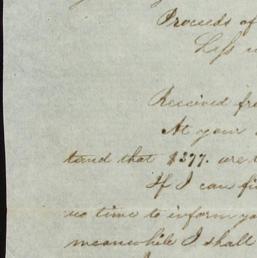 Proceeds of
Less
Received fro
At your
tend that $377. are
If I can fi
no time to inform yo
meanwhile I shall